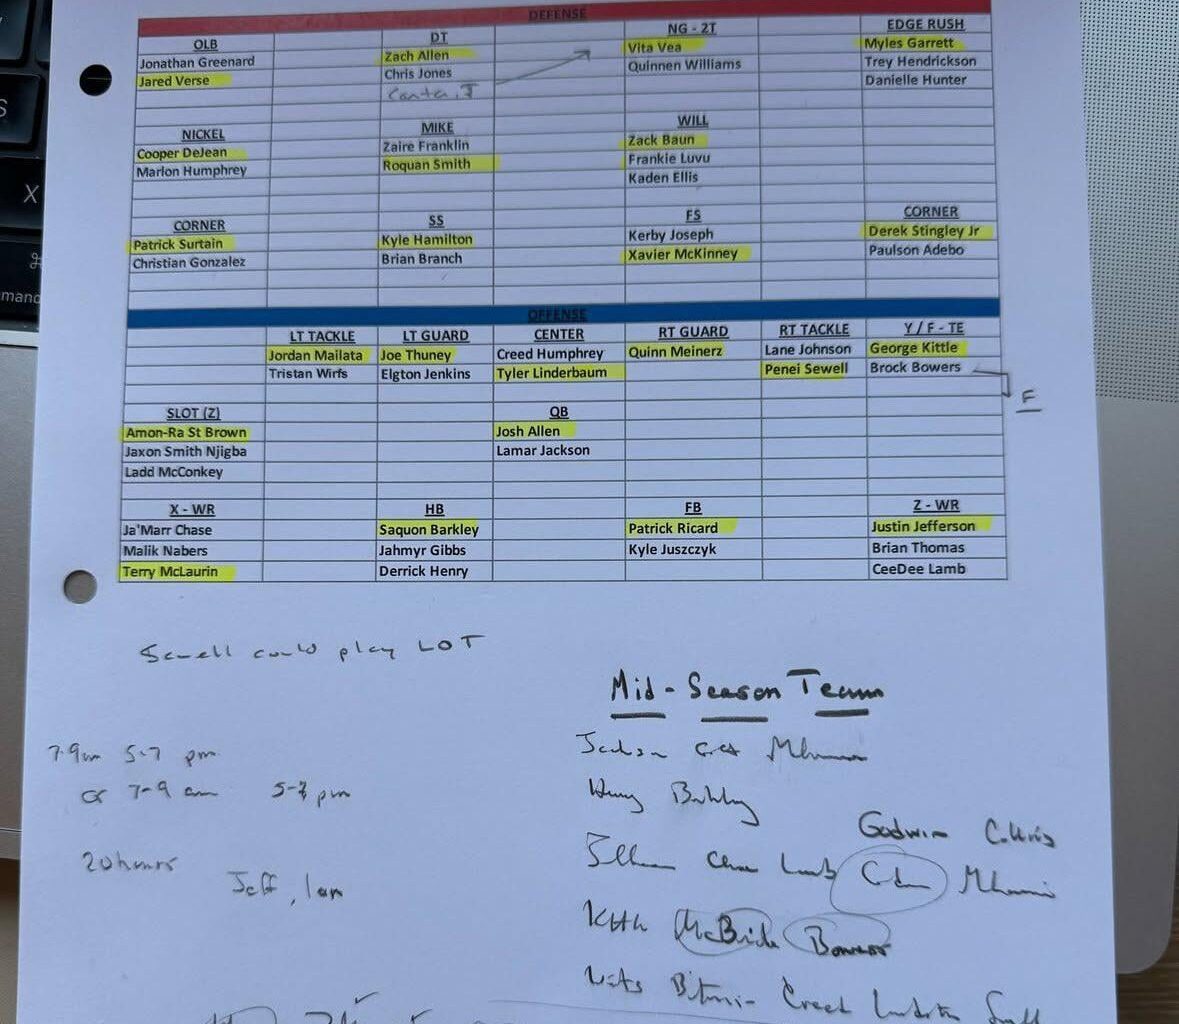 DEFENSE
OLB DT NG - 2T EDGE RUSH
Jonathan Greenard Zach Allen Vita Vea Myles Garrett
Jared Verse Chris Jones Quinnen Williams Trey Hendrickson
Danielle Hunter
NICKEL MIKE WILL
Cooper DeJean Zaire Franklin Zack Baun
Marlon Humphrey Roquan Smith Frankie Luvu
Kaden Ellis
CORNER SS FS CORNER
Patrick Surtain Kyle Hamilton Kerby Joseph Derek Stingley Jr
Christian Gonzalez Brian Branch Xavier McKinney Paulson Adebo
OFFENSE
LT TACKLE LT GUARD CENTER RT GUARD RT TACKLE Y / F - TE
Jordan Mailata Joe Thuney Creed Humphrey Quinn Meinerz Lane Johnson George Kittle
Tristan Wirfs Elgton Jenkins Tyler Linderbaum Penei Sewell Brock Bowers
F
SLOT (Z) QB
Amon-Ra St Brown Josh Allen
Jaxon Smith Njigba Lamar Jackson
Ladd McConkey
X - WR HB FB Z - WR
Ja'Marr Chase Saquon Barkley Patrick Ricard Justin Jefferson
Malik Nabers Jahmyr Gibbs Kyle Juszczyk Brian Thomas
Terry McLaurin Derrick Henry CeeDee Lamb
Sewell could play LOT
Mid - Season Team
7-9am 5-7 pm
or 7-9 am 5-7 pm
20 hours
Jeff, Ian
Jackson
Henry Barkley
Godwin
Chase Lamb
McBride Bowers
Creed